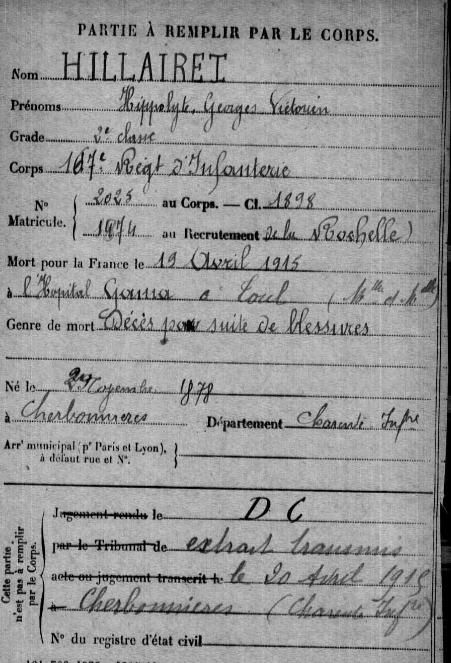 PARTIE À REMPLIR PAR LE CORPS.
Nom HILLAIRET
Prénoms Hippolyte, Georges Victorien
Grade 2e classe
Corps 167e Régt d'Infanterie
N° Matricule. { 2025 au Corps. — Cl. 1898
1974 au Recrutement de la Rochelle)
Mort pour la France le 19 Avril 1915
à l'Hopital Gama à Toul (Mthe et Mlle)
Genre de mort Décès par suite de blessures
Né le Novembre 1878
à Cherbonnières Département Charente Infre
Arrt municipal (pr Paris et Lyon),
à défaut rue et N°.
Cette partie n'est pas à remplir par le Corps.
Jugement rendu le D C
par le Tribunal de extrait transmis
acte ou jugement transcrit le le 20 Avril 1915
à Cherbonnières (Charente Infre)
N° du registre d'état civil